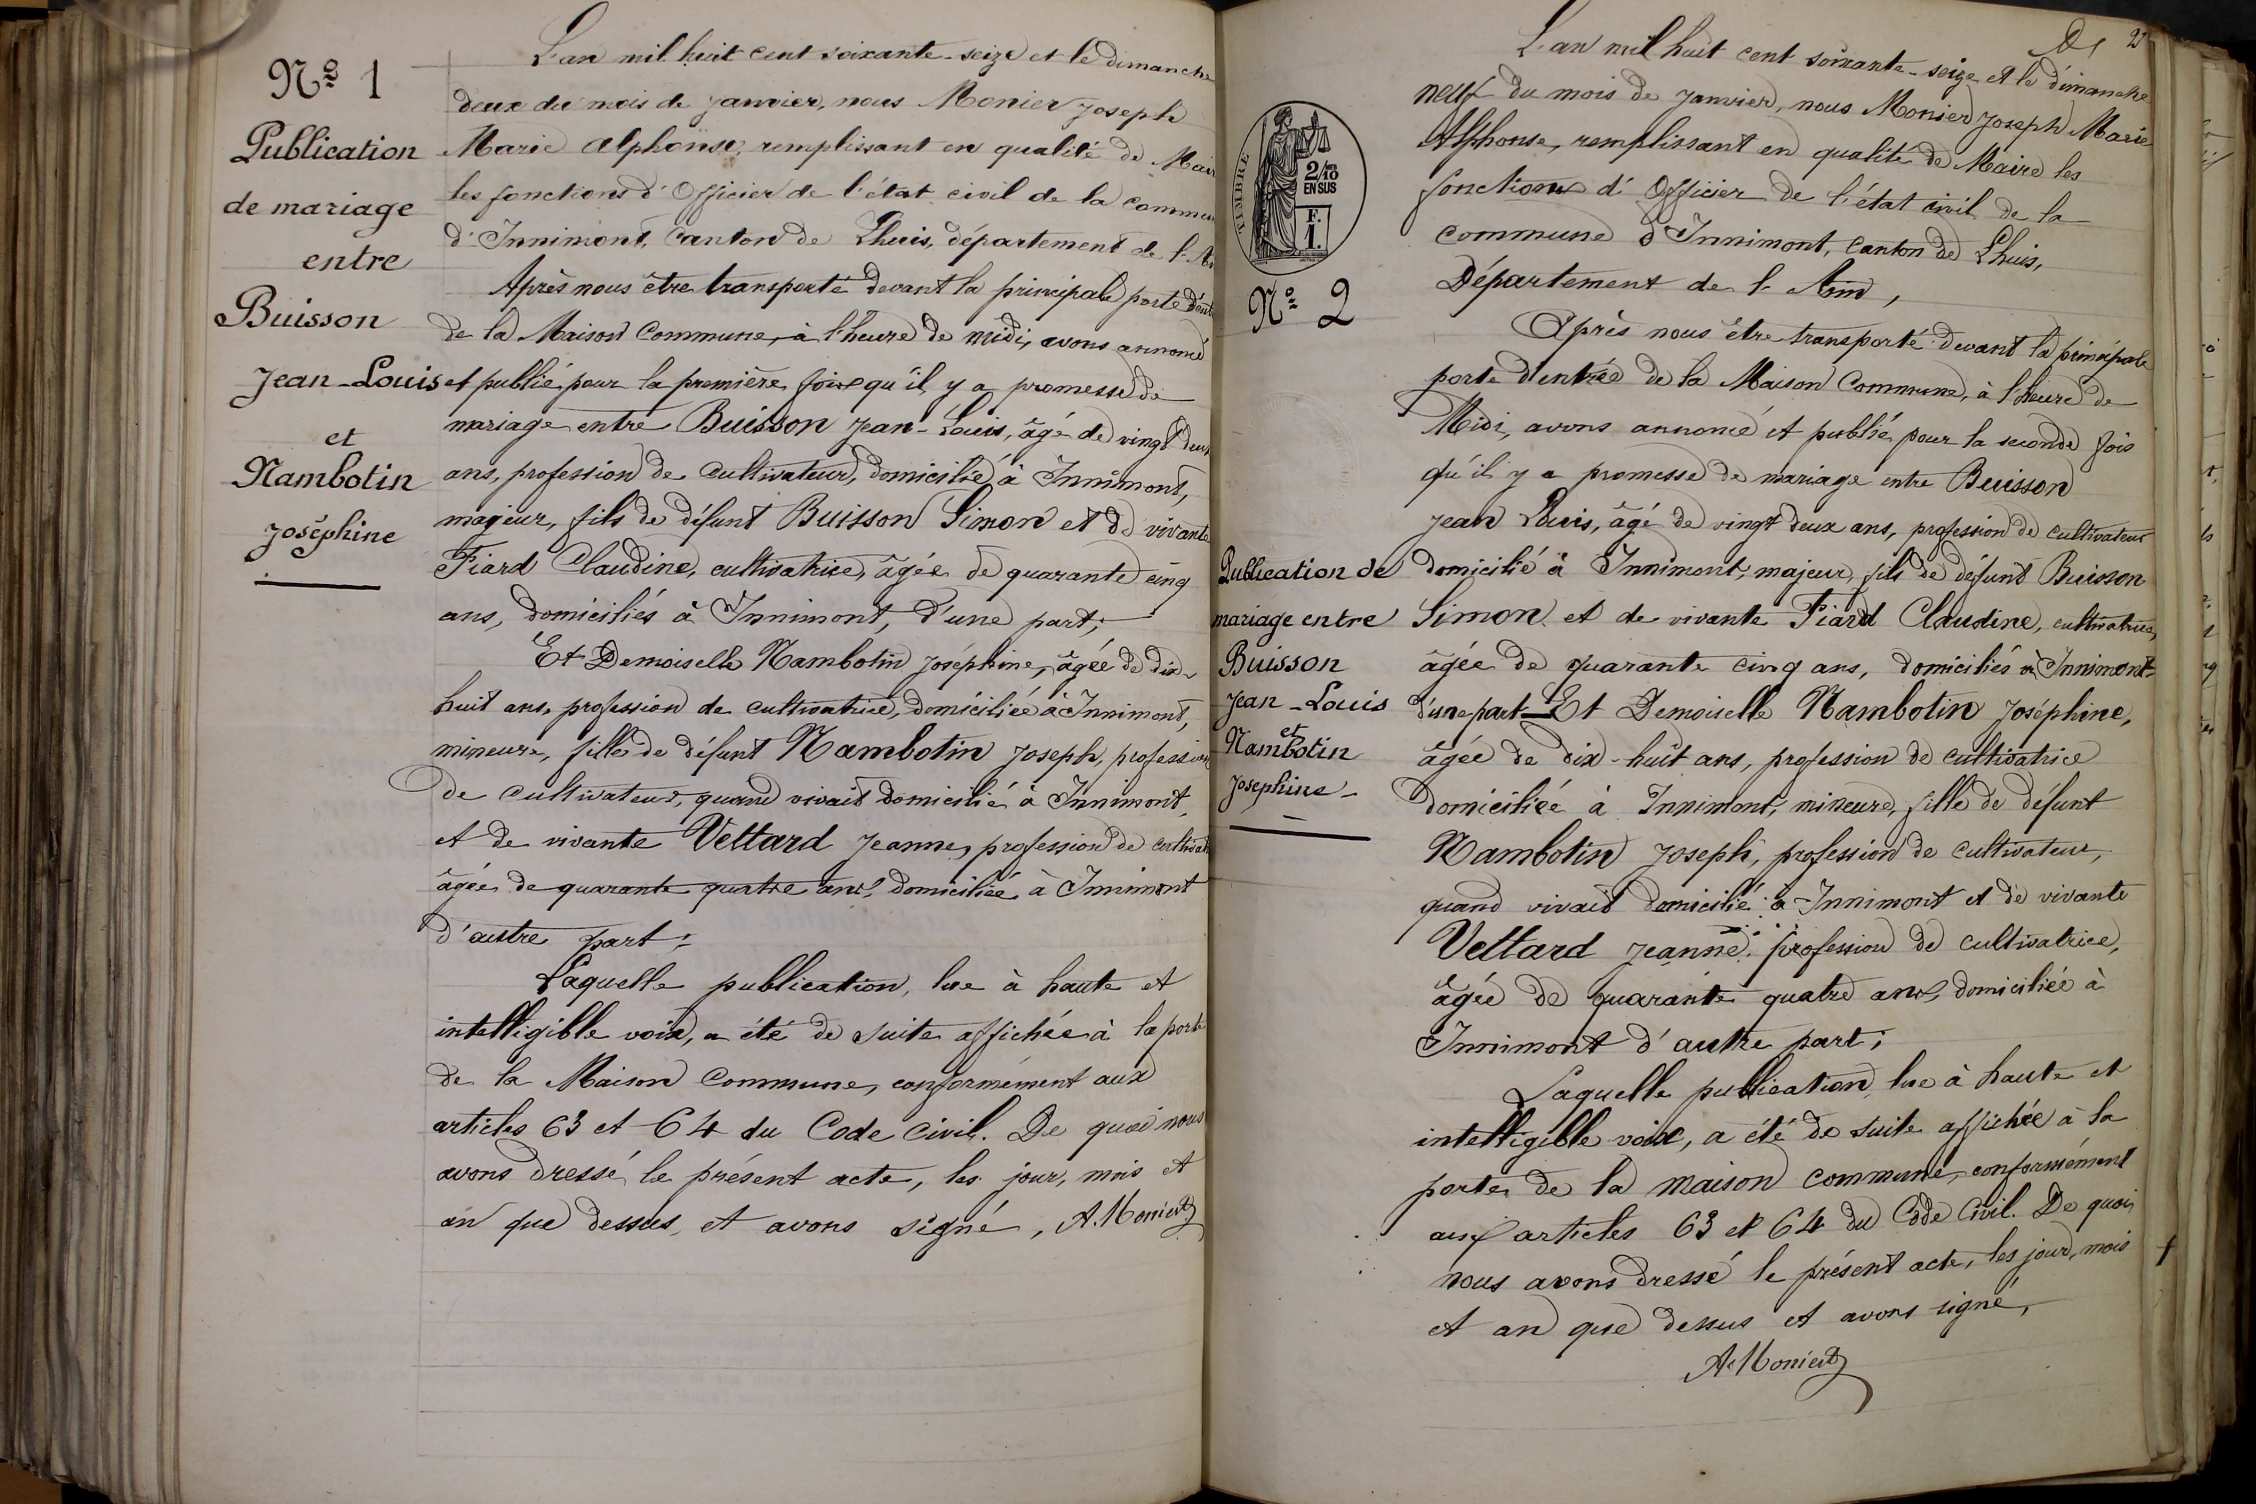 Nº 1
Publication
de mariage
entre
Buisson
Jean-Louis
et
Nambotin
Joséphine
L'an mil huit cent soixante-seize et le dimanche
deux du mois de Janvier, nous Monier Joseph
Marie Alphonse, remplissant en qualité de Mair
les fonctions d'Officier de l'état civil de la commu
d'Innimont, Canton de Lhuis, département de l'Ai
Après nous être transporté devant la principale porte d'ent
de la Maison Commune, à l'heure de midi, avons annoncé
et publié pour la première fois qu'il y a promesse de
mariage entre Buisson Jean-Louis, âgé de vingt deux
ans, profession de cultivateur, domicilié à Innimont,
majeur, fils de défunt Buisson Simon et de vivante
Fiard Claudine, cultivatrice, âgée de quarante cinq
ans, domiciliés à Innimont, d'une part;
Et Demoiselle Nambotin Joséphine, âgée de dix-
huit ans, profession de cultivatrice, domiciliée à Innimont,
mineure, fille de défunt Nambotin Joseph, profession
de cultivateur, quand vivait domicilié à Innimont,
et de vivante Vettard Jeanne, profession de cultivat
âgée de quarante quatre ans, domiciliée à Innimont
d'autre part;
Laquelle publication, lue à haute et
intelligible voix, a été de suite affichée à la porte
de la Maison Commune, conformément aux
articles 63 et 64 du Code Civil. De quoi nous
avons dressé le présent acte, les jour, mois et
an que dessus, et avons signé, A. Monier
2
TIMBRE
2/10
EN SUS
F.
1.
Nº 2
Publication de
mariage entre
Buisson
Jean-Louis
et
Nambotin
Josephine
L'an mil huit cent soixante-seize et le dimanche
neuf du mois de Janvier, nous Monier Joseph Marie
Alphonse, remplissant en qualité de Maire les
fonctions d'Officier de l'état civil de la
commune d'Innimont, Canton de Lhuis,
Département de l'Ain,
Après nous être transporté devant la principale
porte d'entrée de la Maison Commune, à l'heure de
Midi, avons annoncé et publié pour la seconde fois
qu'il y a promesse de mariage entre Buisson
Jean Louis, âgé de vingt deux ans, profession de cultivateur
domicilié à Innimont, majeur, fils de défunt Buisson
Simon et de vivante Fiard Claudine, cultivatrice,
âgée de quarante cinq ans, domiciliés à Innimont
d'une part - Et Demoiselle Nambotin Joséphine,
âgée de dix-huit ans, profession de cultivatrice
domiciliée à Innimont, mineure, fille de défunt
Nambotin Joseph, profession de cultivateur,
quand vivait domicilié à Innimont et de vivante
Vettard Jeanne, profession de cultivatrice,
âgée de quarante quatre ans, domiciliée à
Innimont d'autre part;
Laquelle publication, lue à haute et
intelligible voix, a été de suite affichée à la
porte de la maison commune, conformément
aux articles 63 et 64 du Code Civil. De quoi
nous avons dressé le présent acte, les jour, mois
et an que dessus et avons signé,
A. Monier